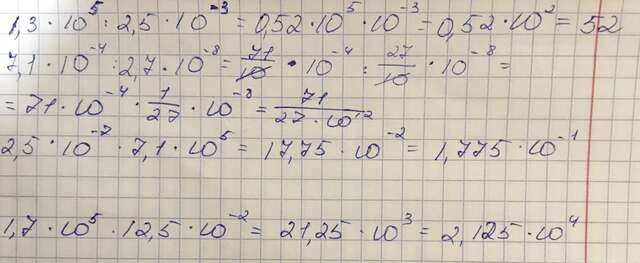 1,3 · 10⁵ : 2,5 · 10⁻³ = 0,52 · 10⁵ · 10⁻³ = 0,52 · 10² = 52
7,1 · 10⁻⁴ : 2,7 · 10⁻⁸ = 71/10 · 10⁻⁴ : 27/10 · 10⁻⁸ =
= 71 · 10⁻⁴ · 1/27 · 10⁻⁸ = 71/27 · 10¹²
2,5 · 10⁻⁷ · 7,1 · 10⁵ = 17,75 · 10⁻² = 1,775 · 10⁻¹
1,7 · 10⁵ · 12,5 · 10⁻² = 21,25 · 10³ = 2,125 · 10⁴